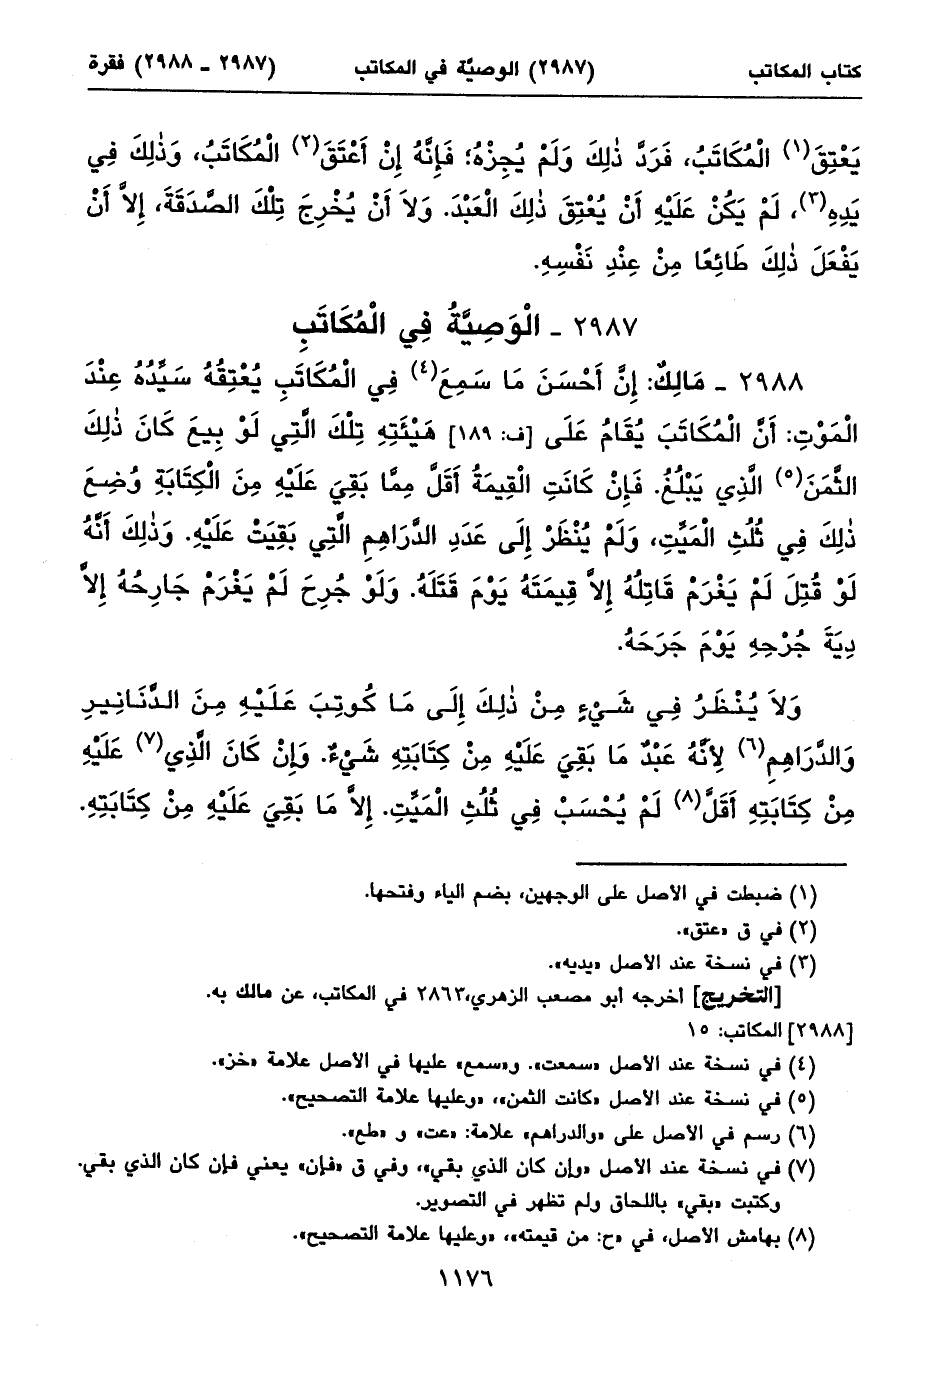 كتاب المكاتب (٢٩٨٧) الوصيَّة في المكاتب (٢٩٨٧ ـ ٢٩٨٨) فقرة
يَعْتِقَ(١) الْمُكَاتَبُ، فَرَدَّ ذٰلِكَ وَلَمْ يُجِزْهُ؛ فَإِنَّهُ إِنْ أَعْتَقَ(٢) الْمُكَاتَبُ، وَذٰلِكَ فِي
يَدِهِ(٣)، لَمْ يَكُنْ عَلَيْهِ أَنْ يُعْتِقَ ذٰلِكَ الْعَبْدَ. وَلاَ أَنْ يُخْرِجَ تِلْكَ الصَّدَقَةَ، إِلاَّ أَنْ
يَفْعَلَ ذٰلِكَ طَائِعًا مِنْ عِنْدِ نَفْسِهِ.
٢٩٨٧ ـ الْوَصِيَّةُ فِي الْمُكَاتَبِ
٢٩٨٨ ـ مَالِكٌ: إِنَّ أَحْسَنَ مَا سَمِعَ(٤) فِي الْمُكَاتَبِ يُعْتِقُهُ سَيِّدُهُ عِنْدَ
الْمَوْتِ: أَنَّ الْمُكَاتَبَ يُقَامُ عَلَى [ف: ١٨٩] هَيْئَتِهِ تِلْكَ الَّتِي لَوْ بِيعَ كَانَ ذٰلِكَ
الثَّمَنَ(٥) الَّذِي يَبْلُغُ. فَإِنْ كَانَتِ الْقِيمَةُ أَقَلَّ مِمَّا بَقِيَ عَلَيْهِ مِنَ الْكِتَابَةِ وُضِعَ
ذٰلِكَ فِي ثُلُثِ الْمَيِّتِ، وَلَمْ يُنْظَرْ إِلَى عَدَدِ الدَّرَاهِمِ الَّتِي بَقِيَتْ عَلَيْهِ. وَذٰلِكَ أَنَّهُ
لَوْ قُتِلَ لَمْ يَغْرَمْ قَاتِلُهُ إِلاَّ قِيمَتَهُ يَوْمَ قَتَلَهُ. وَلَوْ جُرِحَ لَمْ يَغْرَمْ جَارِحُهُ إِلاَّ
دِيَةَ جُرْحِهِ يَوْمَ جَرَحَهُ.
وَلاَ يُنْظَرُ فِي شَيْءٍ مِنْ ذٰلِكَ إِلَى مَا كُوتِبَ عَلَيْهِ مِنَ الدَّنَانِيرِ
وَالدَّرَاهِمِ(٦) لِأَنَّهُ عَبْدٌ مَا بَقِيَ عَلَيْهِ مِنْ كِتَابَتِهِ شَيْءٌ. وَإِنْ كَانَ الَّذِي(٧) عَلَيْهِ
مِنْ كِتَابَتِهِ أَقَلَّ(٨) لَمْ يُحْسَبْ فِي ثُلُثِ الْمَيِّتِ. إِلاَّ مَا بَقِيَ عَلَيْهِ مِنْ كِتَابَتِهِ.
(١) ضبطت في الأصل على الوجهين، بضم الياء وفتحها.
(٢) في ق «عتق».
(٣) في نسخة عند الأصل «يديه».
[التخريج] أخرجه أبو مصعب الزهري،٢٨٦٣ في المكاتب، عن مالك به.
[٢٩٨٨] المكاتب: ١٥
(٤) في نسخة عند الأصل «سمعت». و«سمع» عليها في الأصل علامة «خز».
(٥) في نسخة عند الأصل «كانت الثمن»، «وعليها علامة التصحيح».
(٦) رسم في الأصل على «والدراهم» علامة: «عت» و «طع».
(٧) في نسخة عند الأصل «وإن كان الذي بقي»، وفي ق «فإن» يعني فإن كان الذي بقي.
وكتبت «بقي» باللحاق ولم تظهر في التصوير.
(٨) بهامش الأصل، في «ح: من قيمته»، «وعليها علامة التصحيح».
١١٧٦